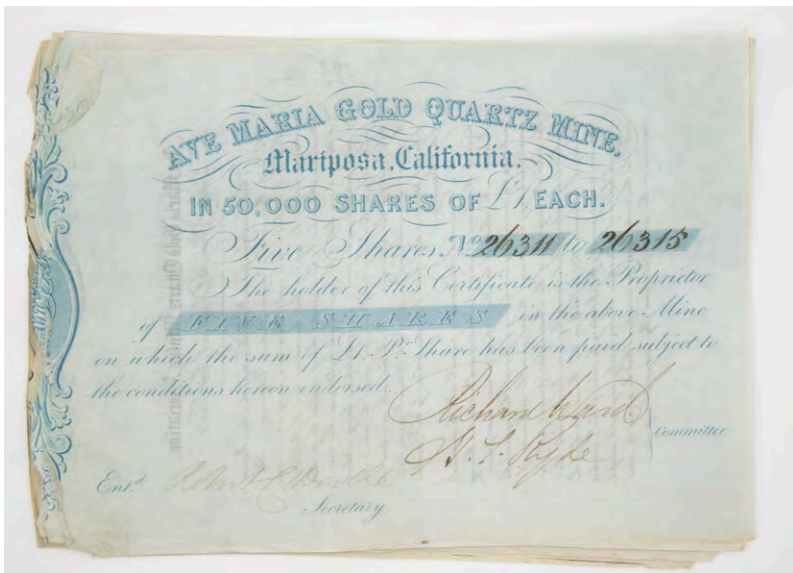 AVE MARIA GOLD QUARTZ MINE,
Mariposa, California.
IN 50,000 SHARES OF £1, EACH.
Five Shares. No 26311 to 26315
The holder of this Certificate is the Proprietor
of FIVE SHARES in the above Mine
on which the sum of £1. Pr. Share has been paid subject to
the conditions hereon endorsed.
Richard
Committee
H. S.
Entd. Robert
Secretary